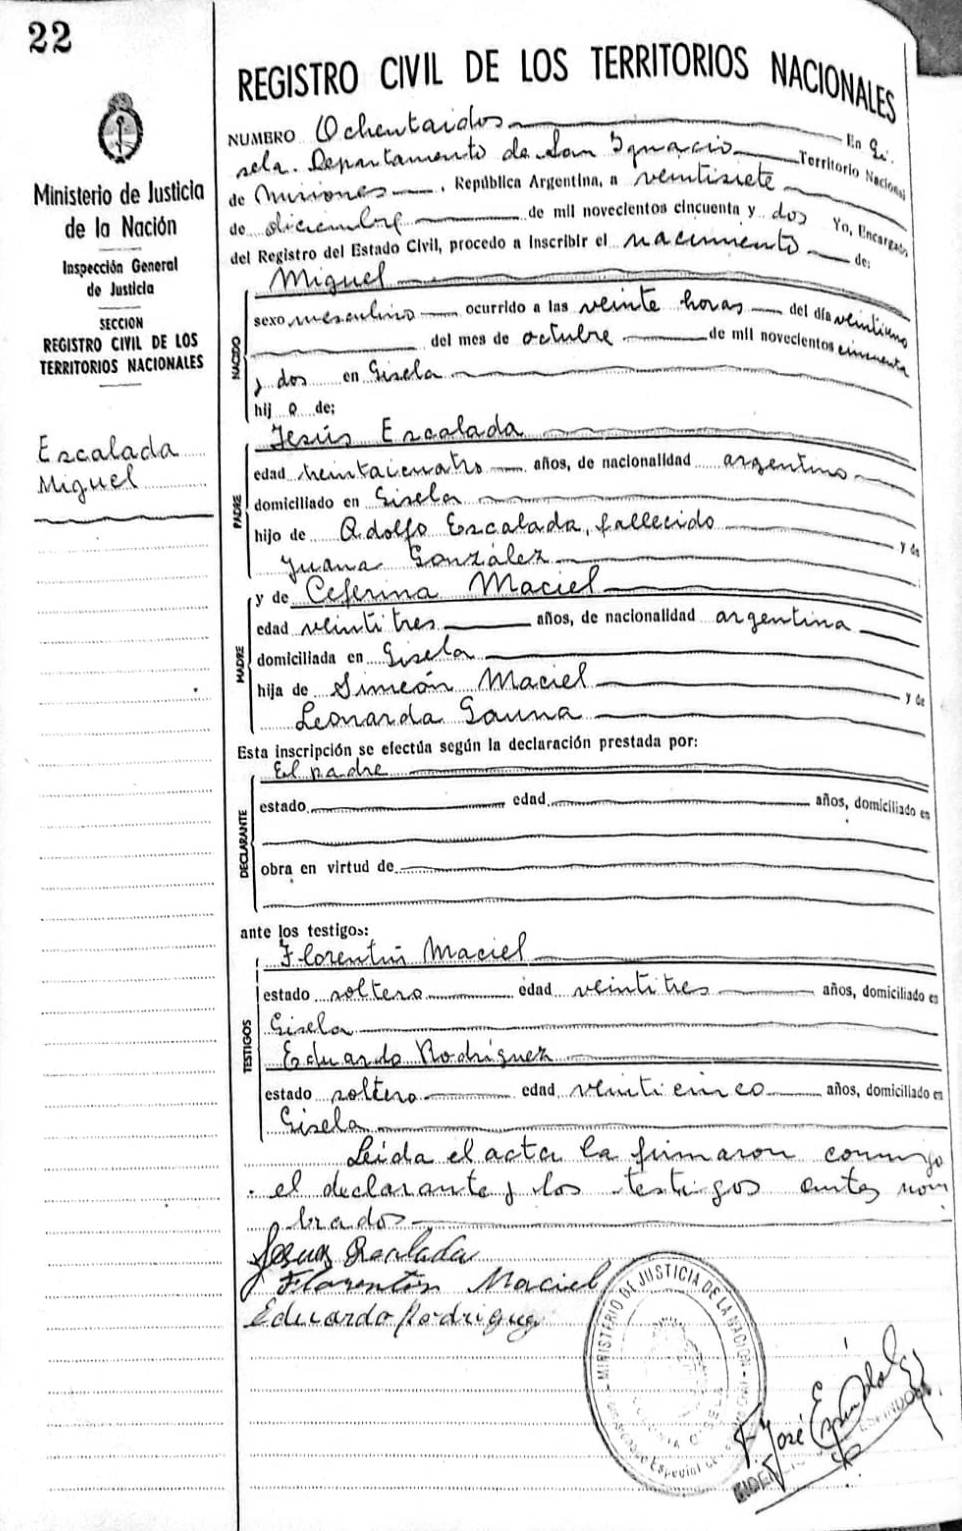 22
REGISTRO CIVIL DE LOS TERRITORIOS NACIONALES
Ministerio de Justicia
de la Nación
Inspección General
de Justicia
SECCION
REGISTRO CIVIL DE LOS
TERRITORIOS NACIONALES
Escalada
Miguel
NUMERO Ochentaidos En Gi-
sela. Departamento de San Ignacio Territorio Nacional
de Misiones, República Argentina, a veintisiete
de diciembre de mil novecientos cincuenta y dos Yo, Encargado
del Registro del Estado Civil, procedo a inscribir el nacimiento de:
NACIDO
Miguel
sexo masculino ocurrido a las veinte horas del día veintiuno
del mes de octubre de mil novecientos cincuenta
y dos en Gisela
hijo de:
PADRE
Jesús Escalada
edad treintaicuatro años, de nacionalidad argentino
domiciliado en Gisela
hijo de Adolfo Escalada, fallecido y de
Juana González
MADRE
y de Ceferina Maciel
edad veintitres años, de nacionalidad argentina
domiciliada en Gisela
hija de Simeón Maciel y de
Leonarda Gauna
Esta inscripción se efectúa según la declaración prestada por:
DECLARANTE
El padre
estado edad años, domiciliado en
obra en virtud de
ante los testigos:
TESTIGOS
Florentin Maciel
estado soltero edad veintitres años, domiciliado en
Gisela
Eduardo Rodriguez
estado soltero edad veinticinco años, domiciliado en
Gisela
Leida el acta la firmaron conmigo
el declarante y los testigos antes nom
brados
Jesus Escalada
Florentin Maciel
Eduardo Rodriguez
MINISTERIO DE JUSTICIA DE LA NACION
José Espíndola